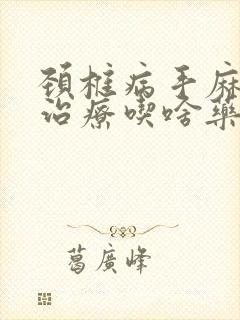 頚椎病手麻
治療喫啥藥
葛廣峰